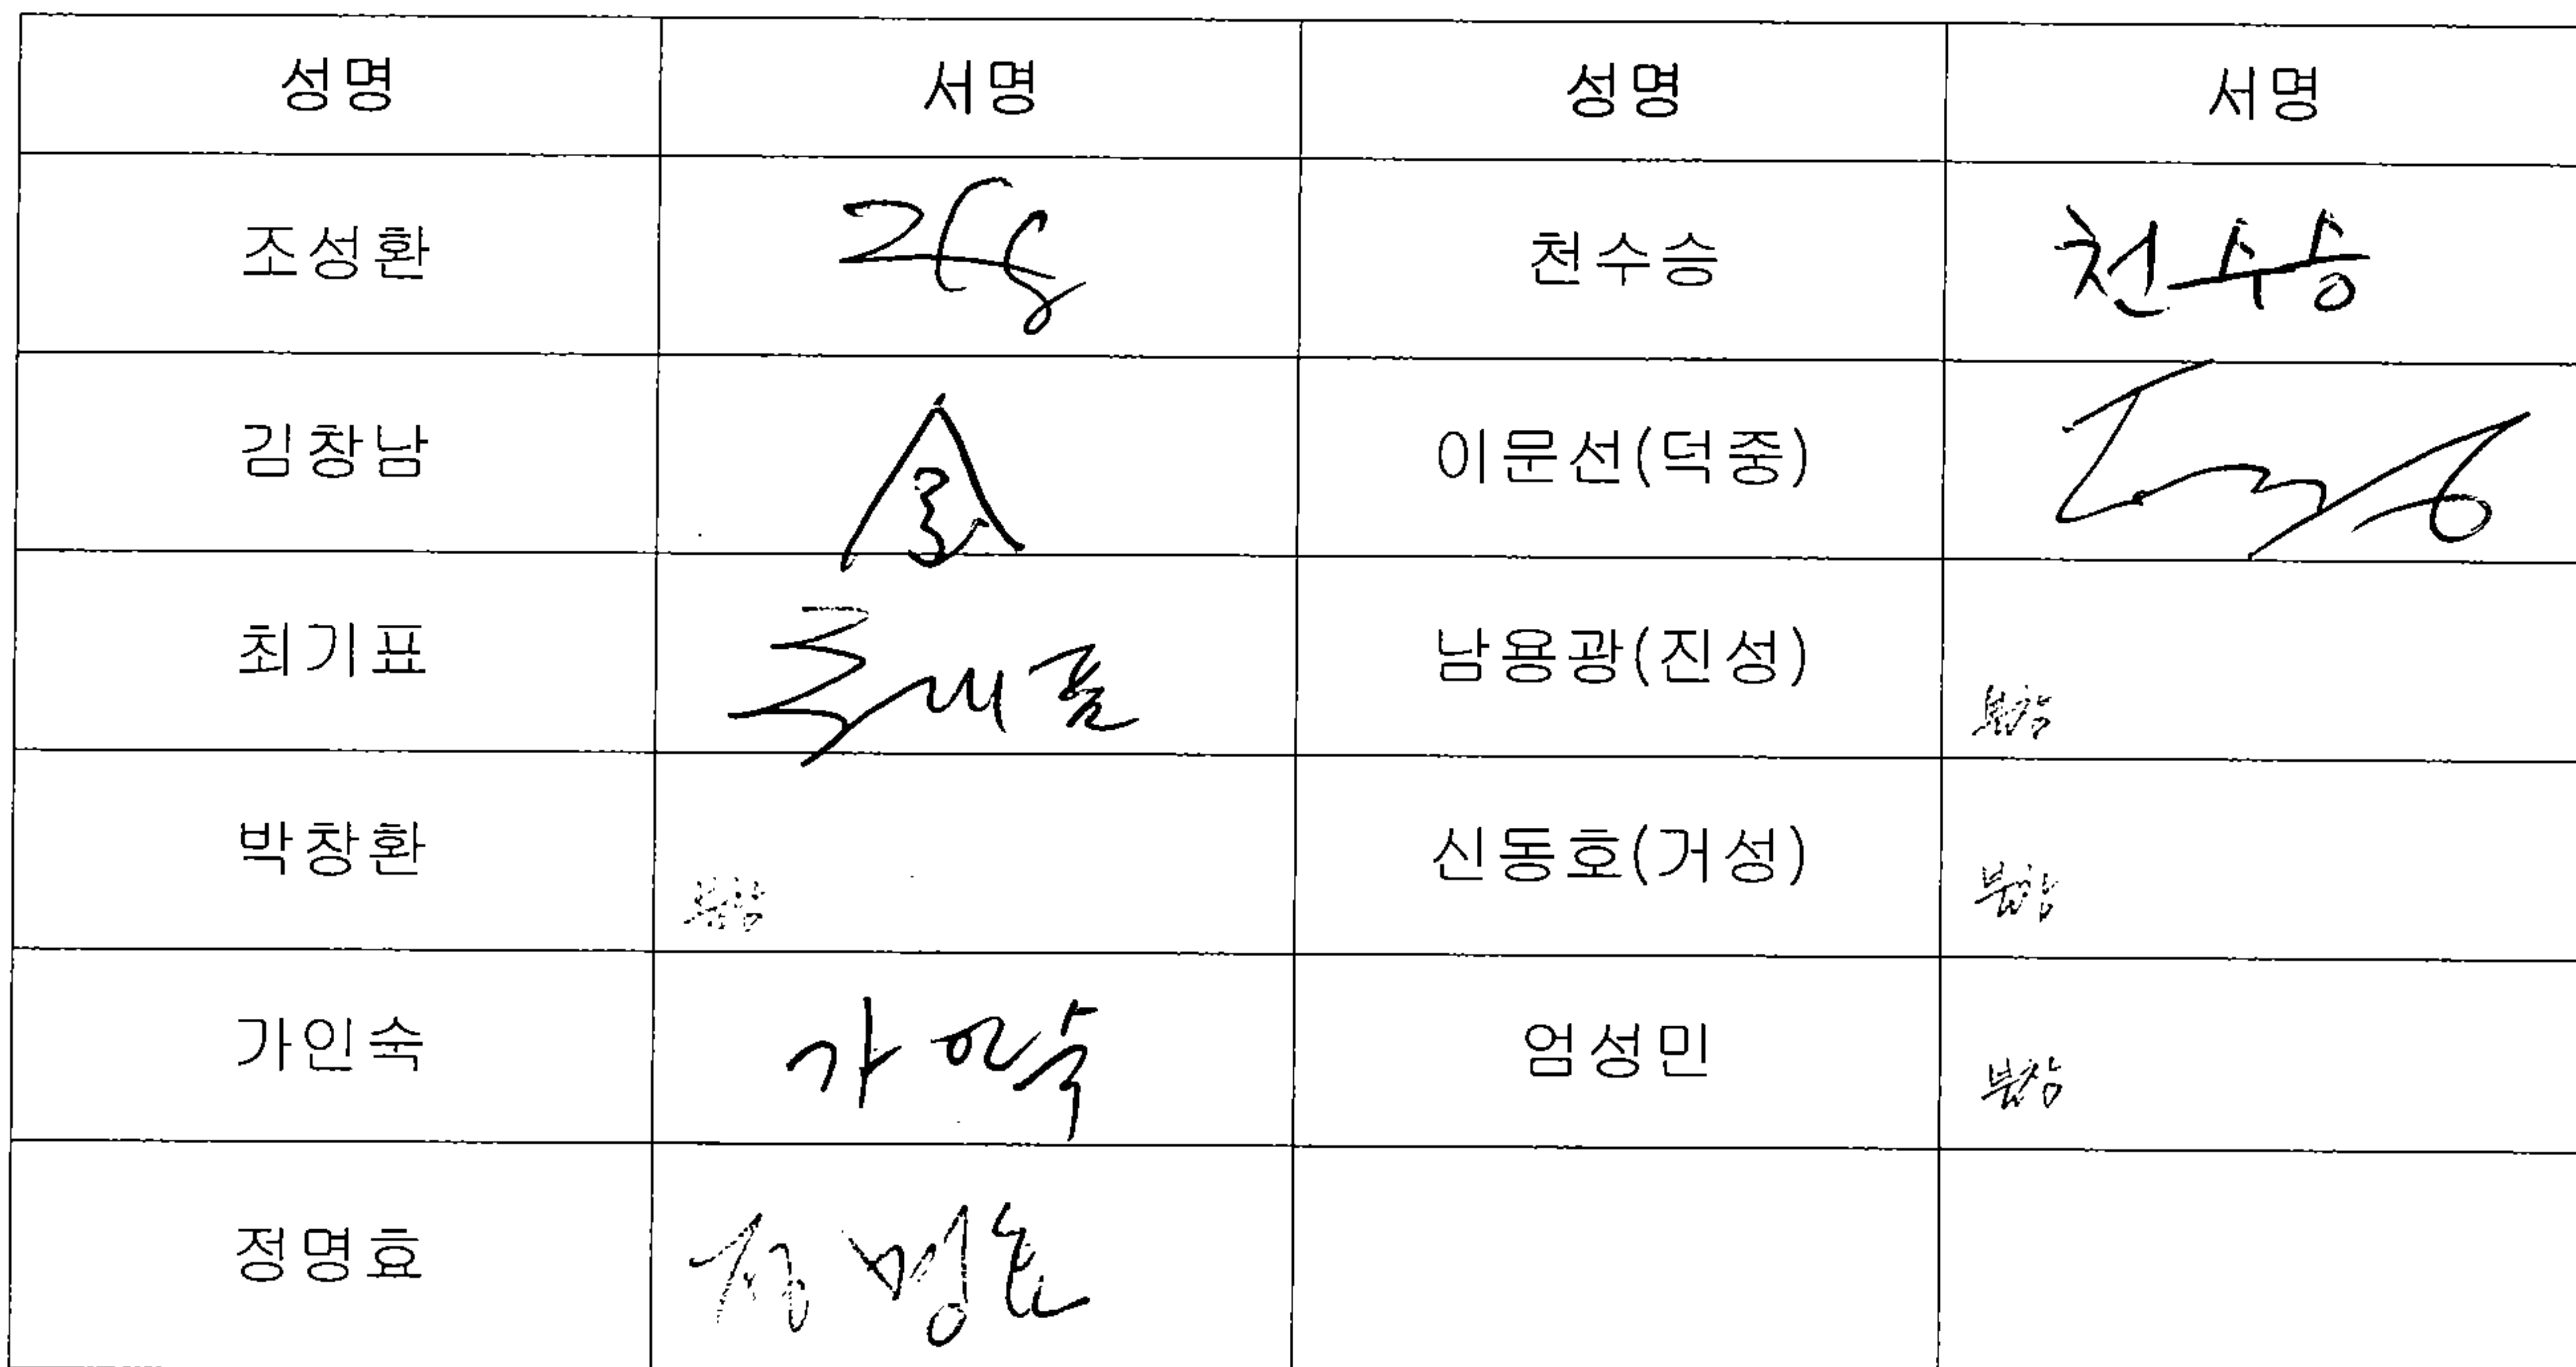 성명 서명 성명 서명
조성환 천수승 천수승
김창남 이문선(덕중)
최기표 남용광(진성) 불참
박창환 불참 신동호(거성) 불참
가인숙 가인숙 엄성민 불참
정명효 정명효